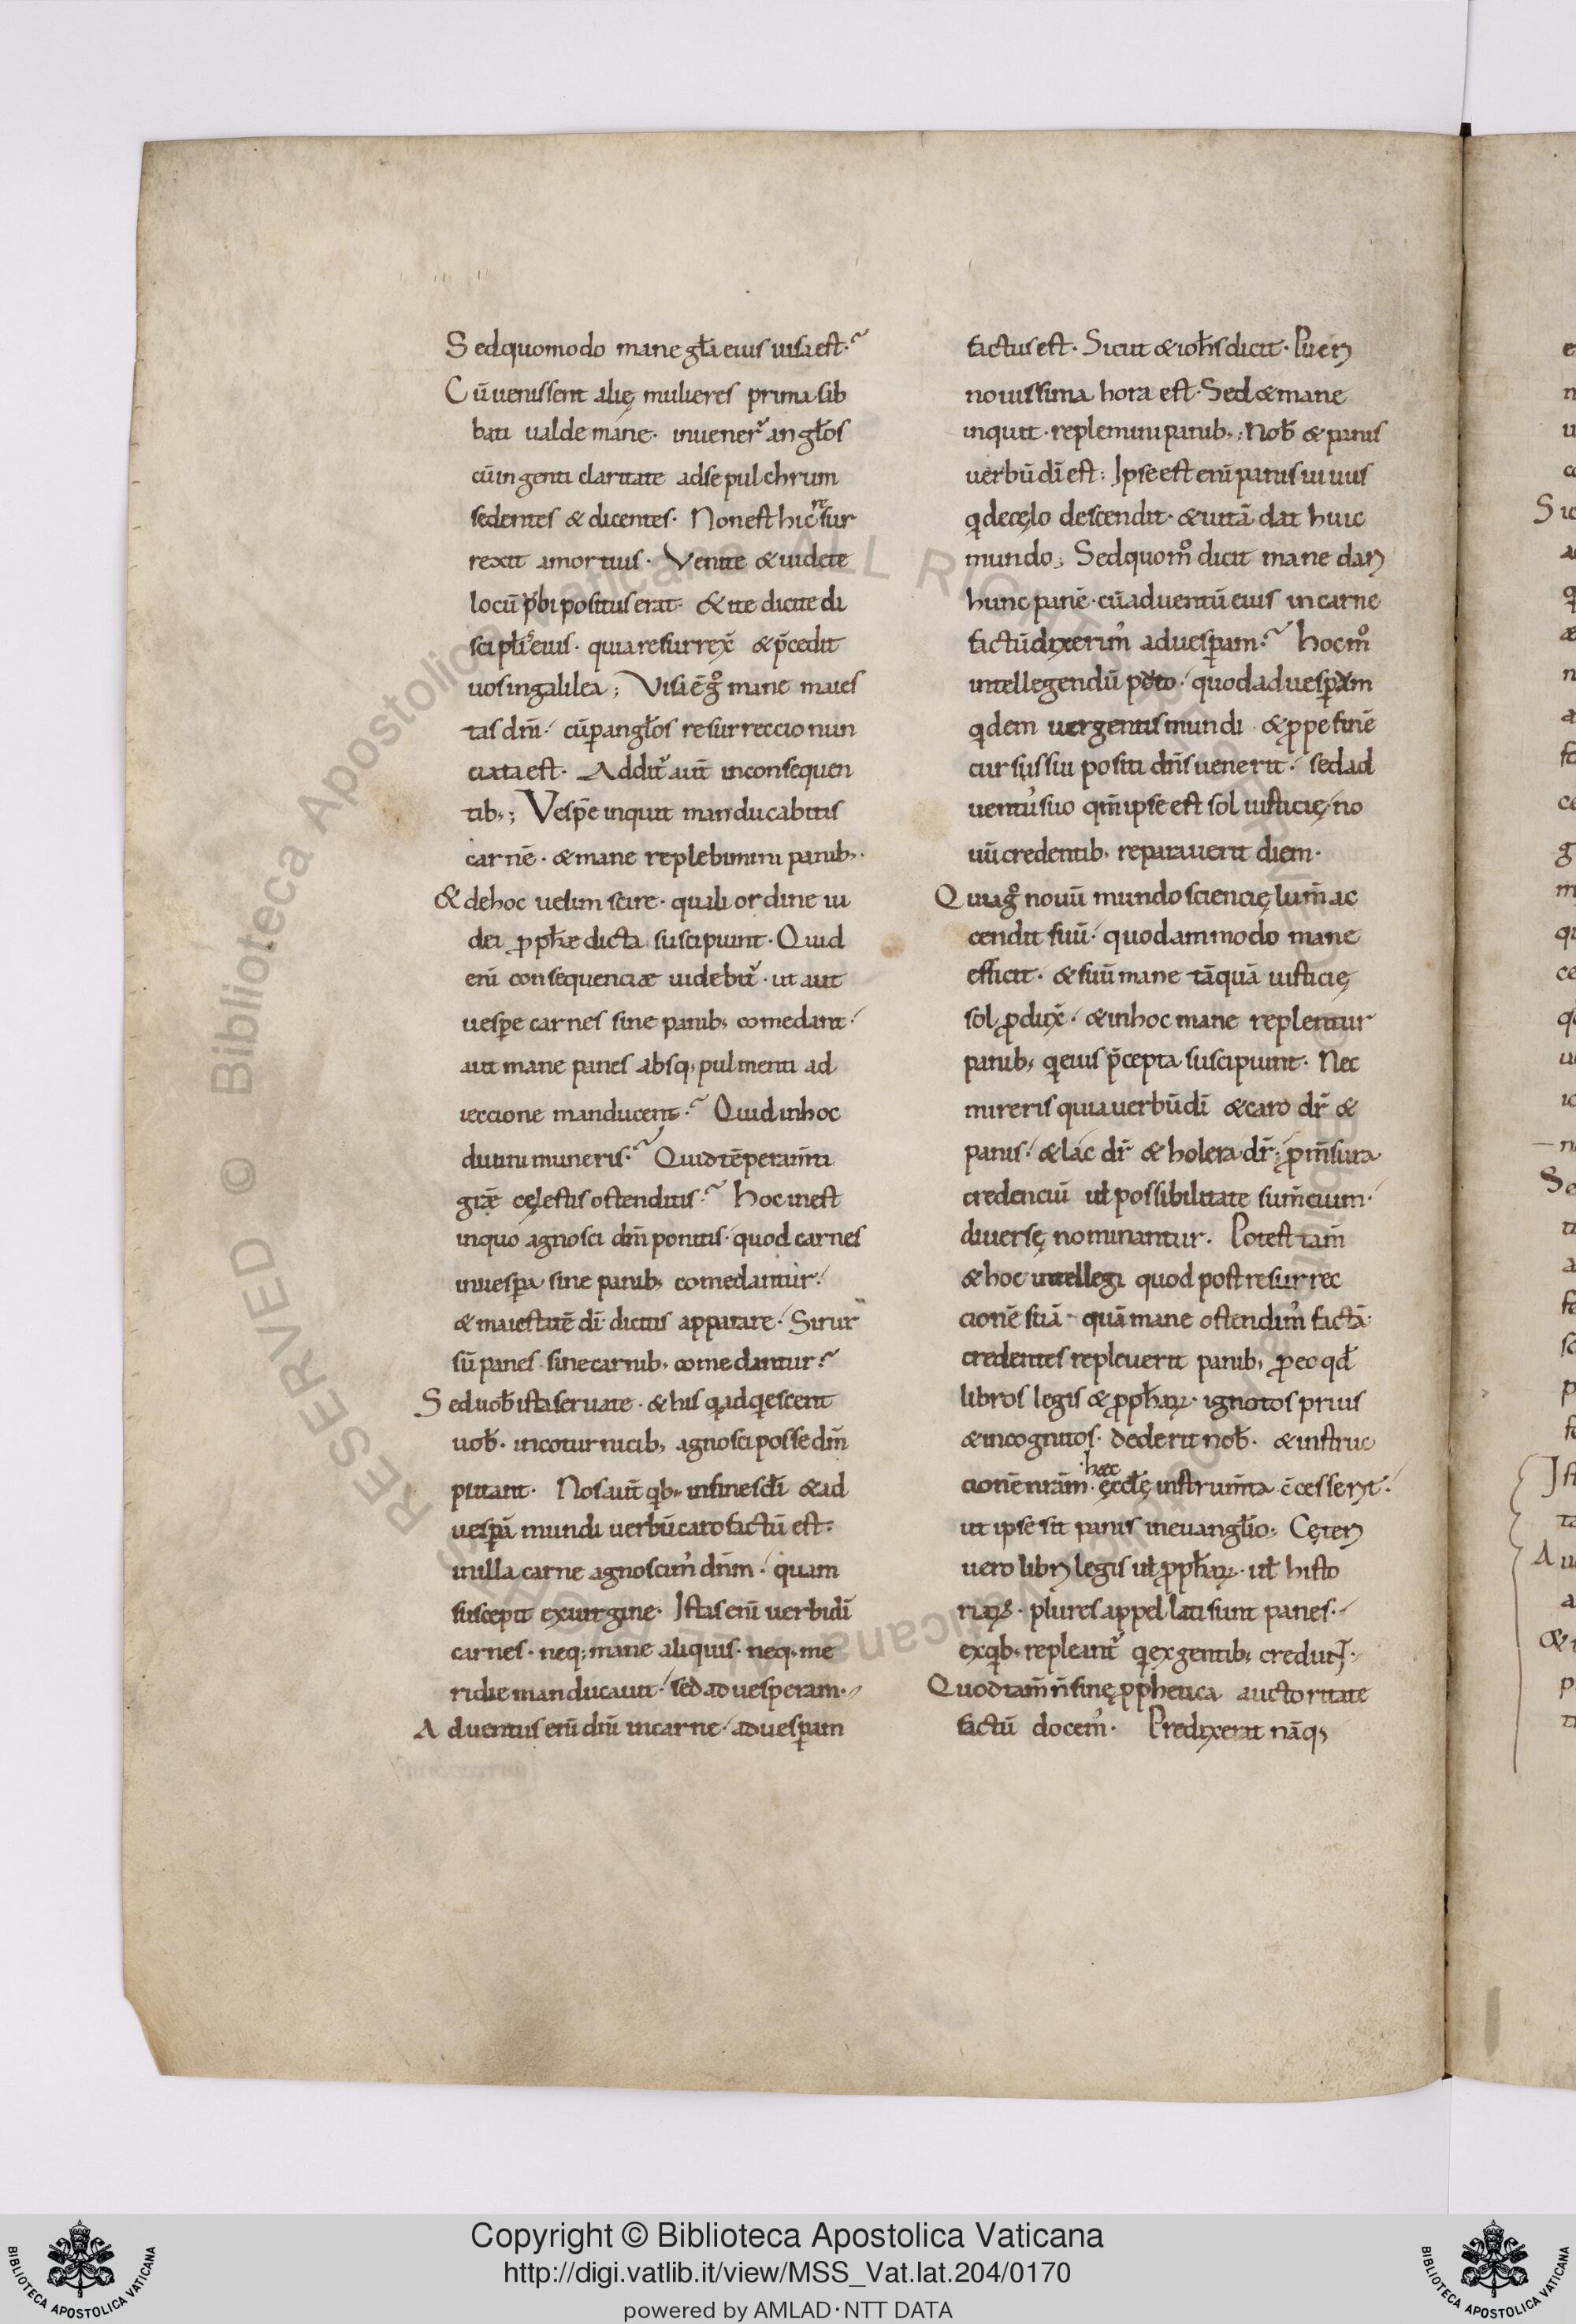 Sed quomodo mane gl̄a eius uisa est·
Cū uenissent alię mulieres prima sab
bati ualde mane· inuenert̃ angl̄os
cū ingenti claritate ad sepulchrum
sedentes & dicentes· Non est hic re sur
rexit a mortuis· Venite & uidete
locū ubi positus erat· & ite dicite di
scipl̄is eius· quia resurrex̄ & p̄cedit
uos in galilea; Visa ē gͦ mane maies
tas dn̄i· cū p angl̄os resurreccio nun
ciata est· Addit̃ aut̄ in consequen
tib;; Vesp̄e inquit manducabitis
carnē· & mane replebimini panib;·
& de hoc uelim scire· quali ordine iu
dei pph̄æ dicta suscipiunt· Quid
eni consequenciæ uidebit̃· ut aut
uespe carnes sine panib; comedant·
aut mane panes absq; pulmenti ad
ieccione manducent· Quid in hoc
diuini muneris· Quid tēperam̄ti
grāæ cęlestis ostenditis· Hoc inest
in quo agnosci dn̄m ponitis· quod carnes
in uespa sine panib; comedantur·
& maiestatē dī dicitis apparare· Si rur
sū panes sine carnib; comedantur·
Sed uob̄ ista seruate· & his q adqescent
uob̄· in coturnicib; agnosci posse dm̄
putant· Nos aut̄ qb; in fine scl̄i & ad
uespā mundi uerbū caro factū est·
in illa carne agnoscim᾽ dn̄m· quam
suscepit ex uirgine· Istas eni uerbi dī
carnes· neq; mane aliquis· neq; me
ridie manducauit· sed ad uesperam·
Aduentus eni dn̄i in carne· ad uespam
factus est· Sicut & ioh̄s dicit· Pueri
nouissima hora est· Sed & mane
inquit· replemini panib;; Nob̄ & panis
uerbū dī est; Ipse est eni panis uiuus
q de cęlo descendit· & uitā dat huic
mundo; Sed quom̊ dicit mane dari
hunc panē· cū aduentū eius in carne
factū dixerim᾽ ad uespam· Hoc m̊
intellegendū puto· quod ad uespam
qdem uergentis mundi & ppe finē
cursus sui positi dn̄s uenerit· sed ad
uentu suo qm̄ ipse est sol iusticię· no
uū credentib; reparauerit diem·
Quia gͦ nouū mundo sciencię lum̄ ac
cendit suū· quodammodo mane
efficit· & suū mane tāquā iusticię
sol pdux̄· & in hoc mane replentur
panib; q eius p̄cepta suscipiunt· Nec
mireris quia uerbū dī & caro dr̄ &
panis· & lac dr̄ & holera dr̄; p m̄sura
credenciū ul̄ possibilitate sum̄cium·
diuersę nominantur· Potest tam̄
& hoc intellegi quod post resurrec
cionē suā· quā mane ostendim᾽ factā·
credentes repleuerit panib; p eo qd̄
libros legis & pph̄arum· ignotos prius
& incognitos· dederit nob̄· & instruc
cionē nr̄am· hæc eccl̄ę instrum̄ta c̄cesserit·
ut ipse sit panis in euangl̄io; Cęteri
uero libri legis ul̄ pph̄arum· ul̄ histo
riarum· plures appellati sunt panes·
ex qb; repleant̃ q ex gentib; credunt·
Quod tam̄ n̄ sinę pphetica auctoritate
factū docem᾽· Predixerat nāq;
Copyright © Biblioteca Apostolica Vaticana
http://digi.vatlib.it/view/MSS_Vat.lat.204/0170
powered by AMLAD·NTT DATA